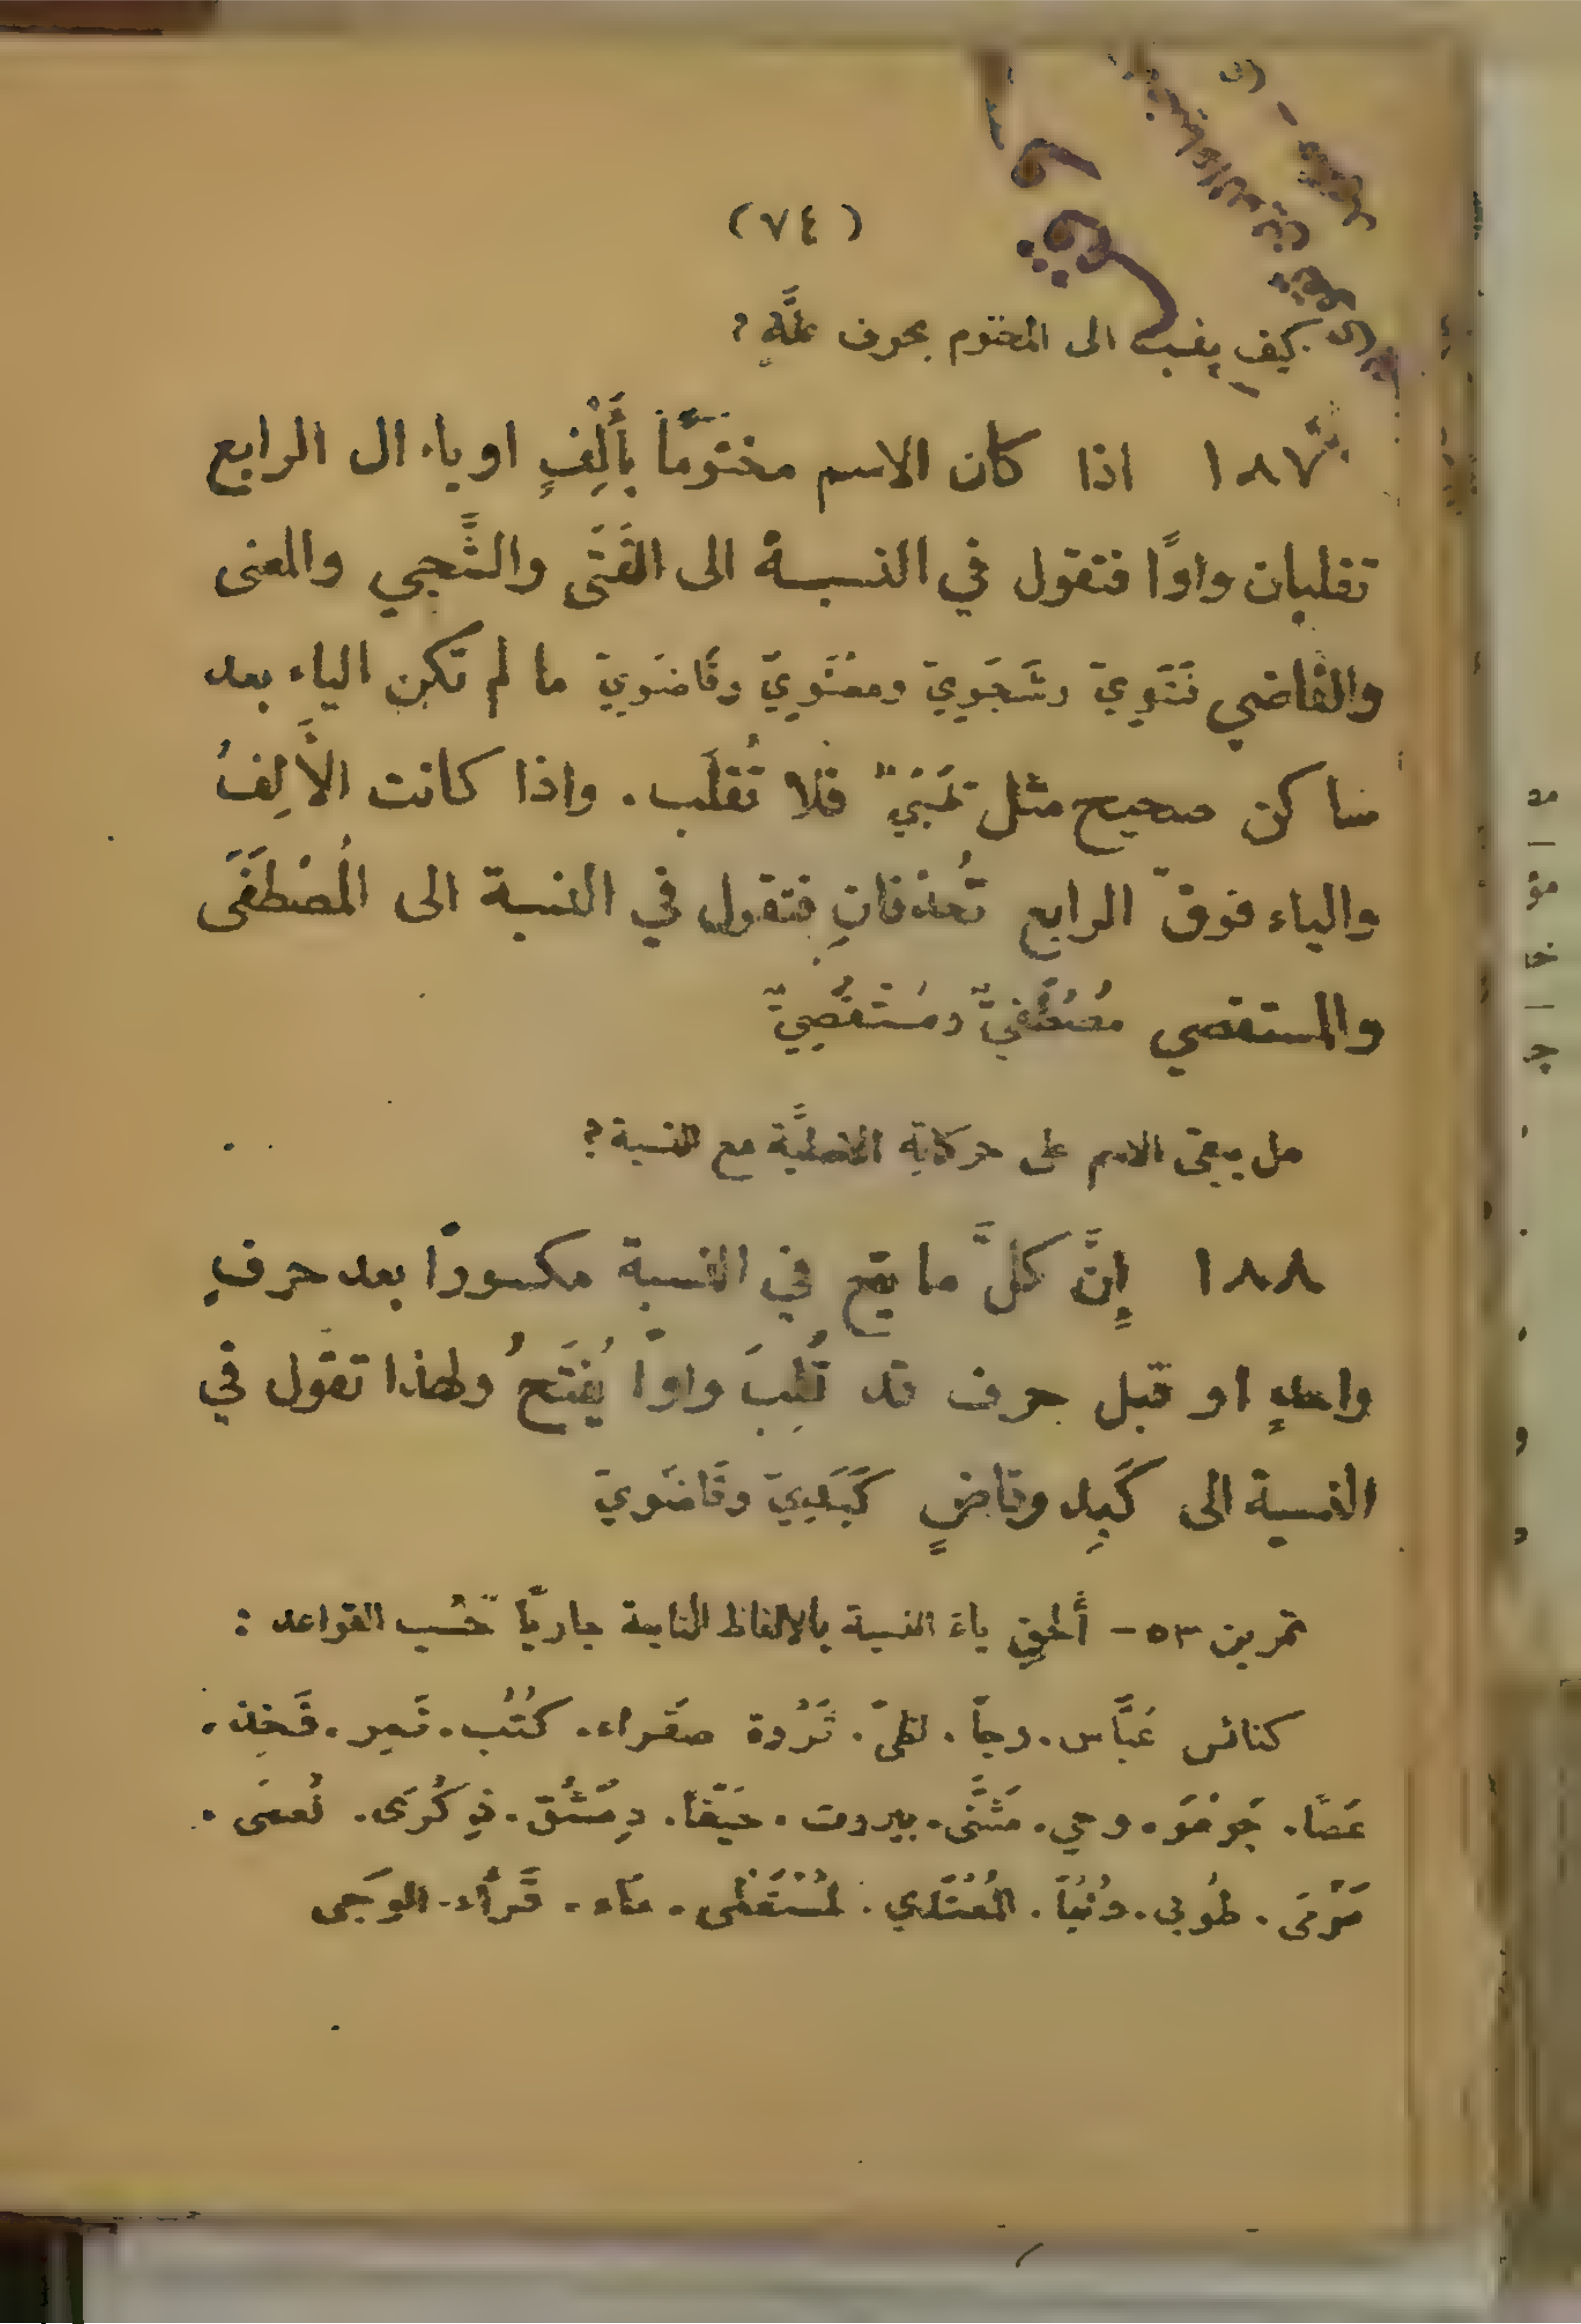 (٧٤)
كيف ينسب الى المختوم بحرف علَّةٍ ؟
١٨٧ اذا كان الاسم مختومًا بأَلِفٍ او ياء ال الرابع
تقلبان واوًا فتقول في النسبة الى الفَتَى والشَّجي والمعنى
والقاضي فَتَوِيّ وشَجَوِيّ ومعْنَوِيّ وقَاضَوِيّ ما لم تكن الياء بعد
ساكن صحيح مثل فلا تُقلَب . واذا كانت الأَلِفُ
والياء فوق الرابع تُحذفانِ فتقول في النسبة الى المُصْطَفَى
والمستقصي مُصْطَفِيٌّ ومُسْتَقْصِيٌّ
هل يبقى الاسم على حركاتِهِ الاصليَّة مع النسبة ؟
١٨٨ إِنَّ كلَّ ما يقع في النسبة مكسورًا بعد حرفٍ
واحدٍ او قبل حرف قد قُلِبَ واوًا يُفتَحُ ولهذا تقول في
النسبة الى كَبِد وقاضٍ كَبَدِيّ وقَاضَوِيّ
تمرين ٥٣ – أَلحق ياءَ النسبة بالالفاظ التابعة جاريًا حَسَب القواعد :
كنائس عَبَّاس . رجاً . ثَرْوة صفراء . كُتُب . نَمِر . فَخِذ .
عَصًا . وحي . مَثْنًى . بيروت . حَيْفَا . دِمَشْق . ذِكْرَى . نُعمَى .
مَرْمَى . طُوبى . دُنْيَا . المُعْتَدي . مُسْتَعْلى . مَاء . قَرَّاء . الوَجى